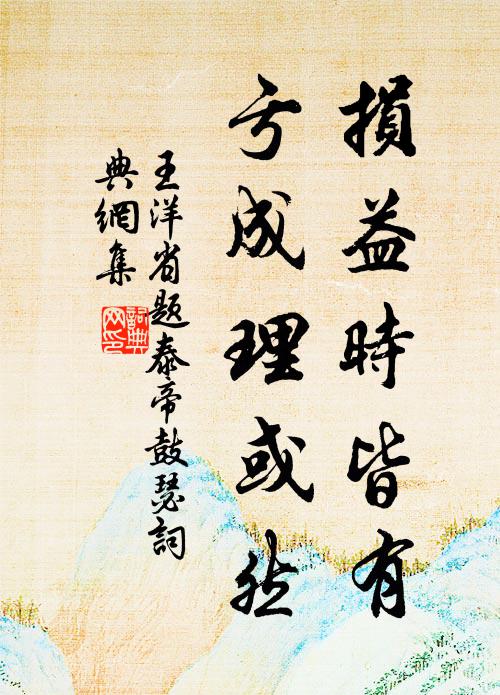 損益時皆有
亏成理或然
王洋省題泰帝鼓瑟詞
典網集
詞典网印